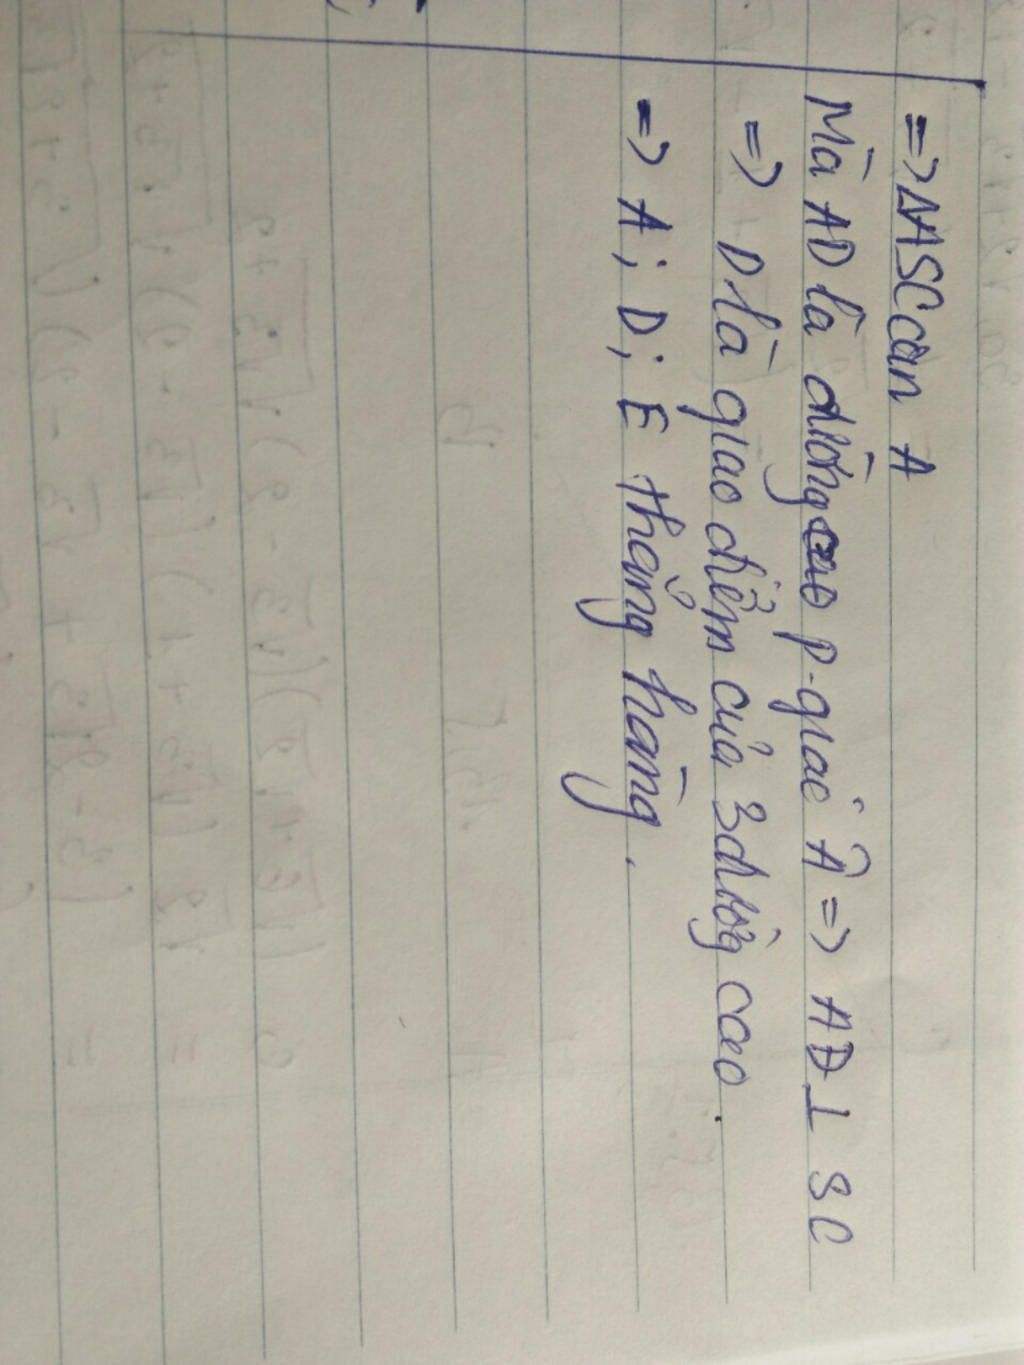 => ΔASC cân A
Mà AD là đường cao p.giác Â => AD ⊥ SC
=> D là giao điểm của 3 đường cao.
=> A; D; E thẳng hàng.